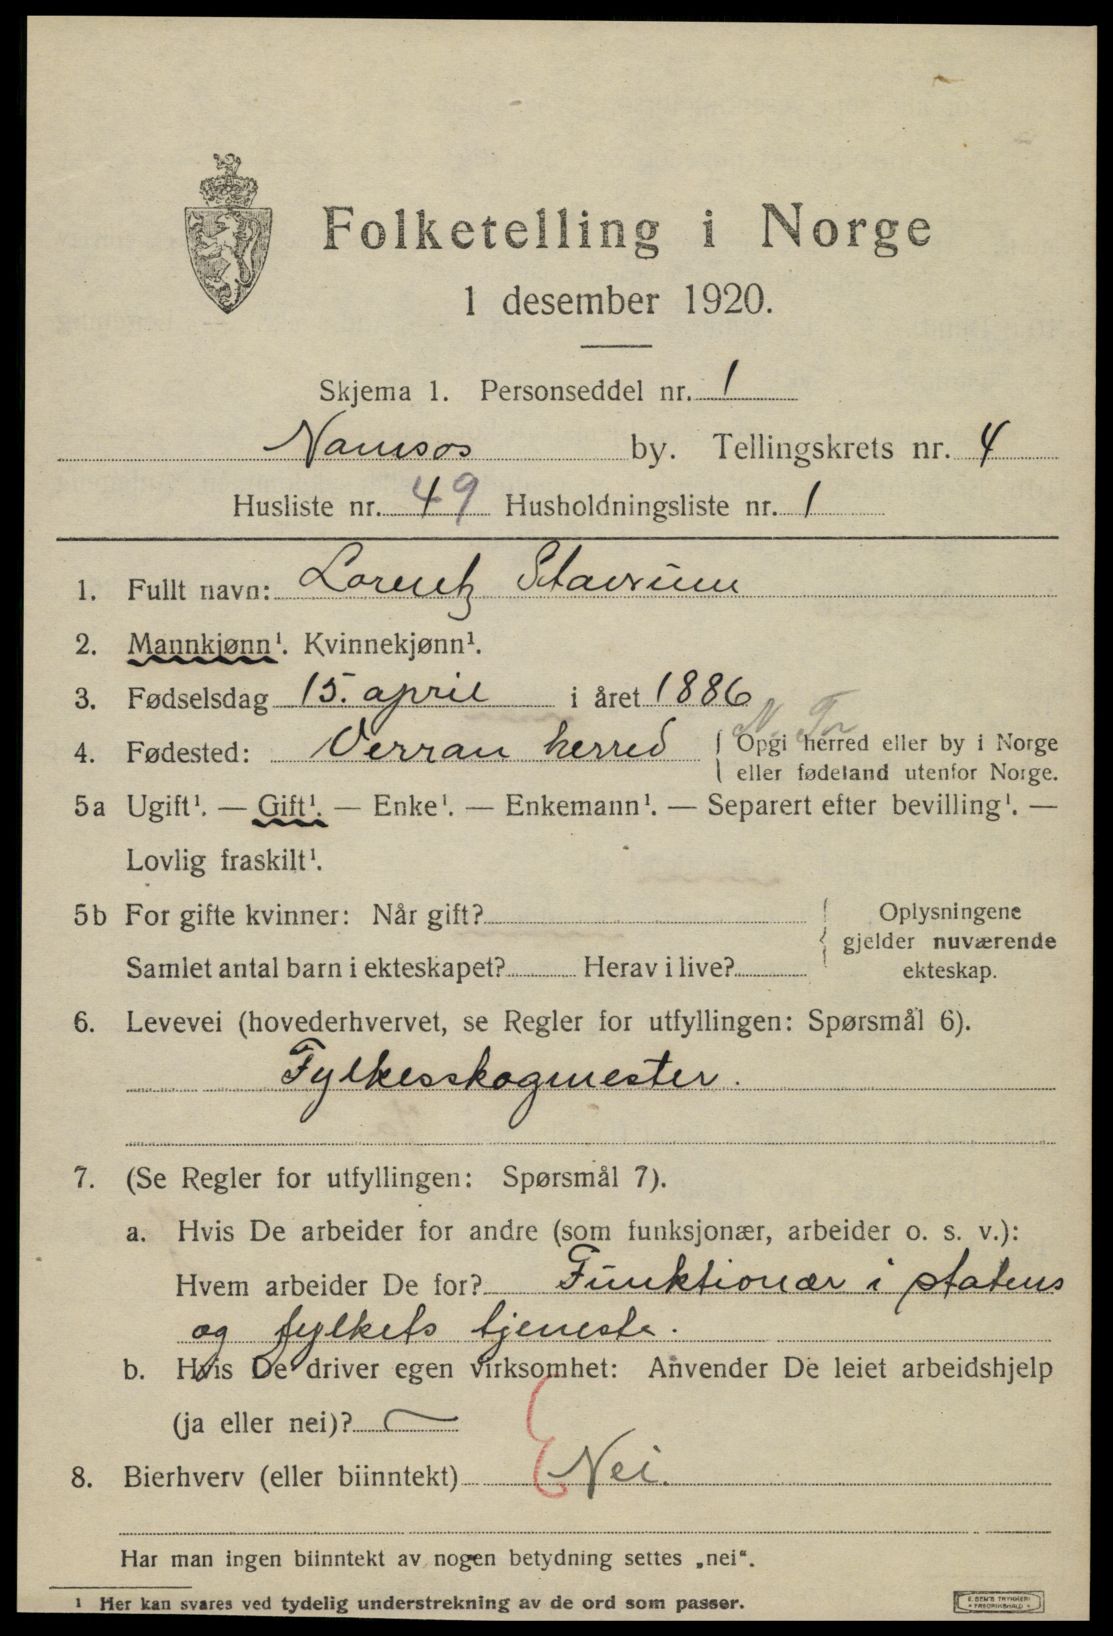 Folketelling i Norge
1 desember 1920.
Skjema 1. Personseddel nr. 1
Namsos by. Tellingskrets nr. 4
Husliste nr. 49 Husholdningsliste nr. 1
1. Fullt navn: Lorentz Stavrum
2. Mannkjønn¹. Kvinnekjønn¹.
3. Fødselsdag 15. april i året 1886
N. Tr
4. Fødested: Verran herred Opgi herred eller by i Norge
eller fødeland utenfor Norge.
5a Ugift¹. — Gift¹. — Enke¹. — Enkemann¹. — Separert efter bevilling¹. —
Lovlig fraskilt¹.
5b For gifte kvinner: Når gift? Oplysningene
gjelder nuværende
Samlet antal barn i ekteskapet? Herav i live? ekteskap.
6. Levevei (hovederhvervet, se Regler for utfyllingen: Spørsmål 6).
Fylkesskogmester.
7. (Se Regler for utfyllingen: Spørsmål 7).
a. Hvis De arbeider for andre (som funksjonær, arbeider o. s. v.):
Hvem arbeider De for? Funktionær i statens
og fylkets tjeneste.
b. Hvis De driver egen virksomhet: Anvender De leiet arbeidshjelp
(ja eller nei)? —
8. Bierhverv (eller biinntekt) Nei.
Har man ingen biinntekt av nogen betydning settes „nei“.
1 Her kan svares ved tydelig understrekning av de ord som passer.